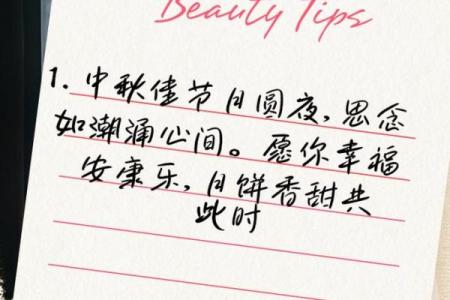 Beauty Tips
1. 中秋佳节月圆夜，思念
如潮涌心间。愿你幸福
安康乐，月饼香甜共
此时